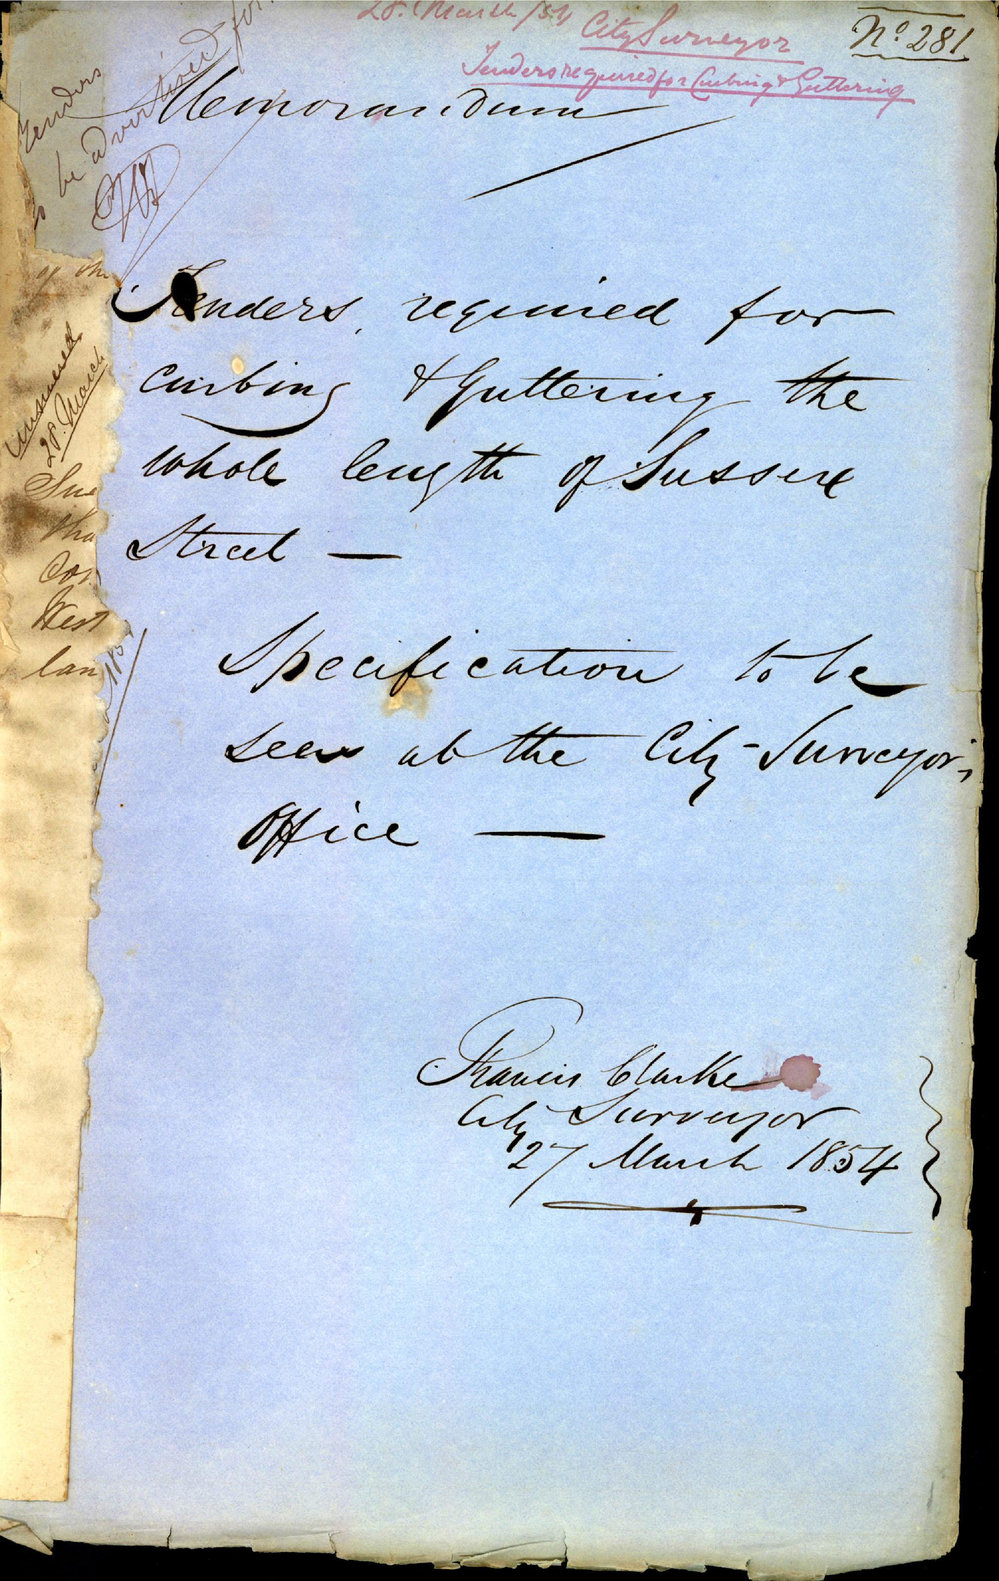 28. March /54
City Surveyor
Tenders required for Curbing & Guttering
No. 281
Tenders
to be advertised for
Memorandum
Tenders required for
curbing & Guttering the
whole length of Sussex
Street —
Specification to be
seen at the City-Surveyor's
Office —
Francis Clarke
City Surveyor
27 March 1854
of the
answered
28. March
Tha
West
lan